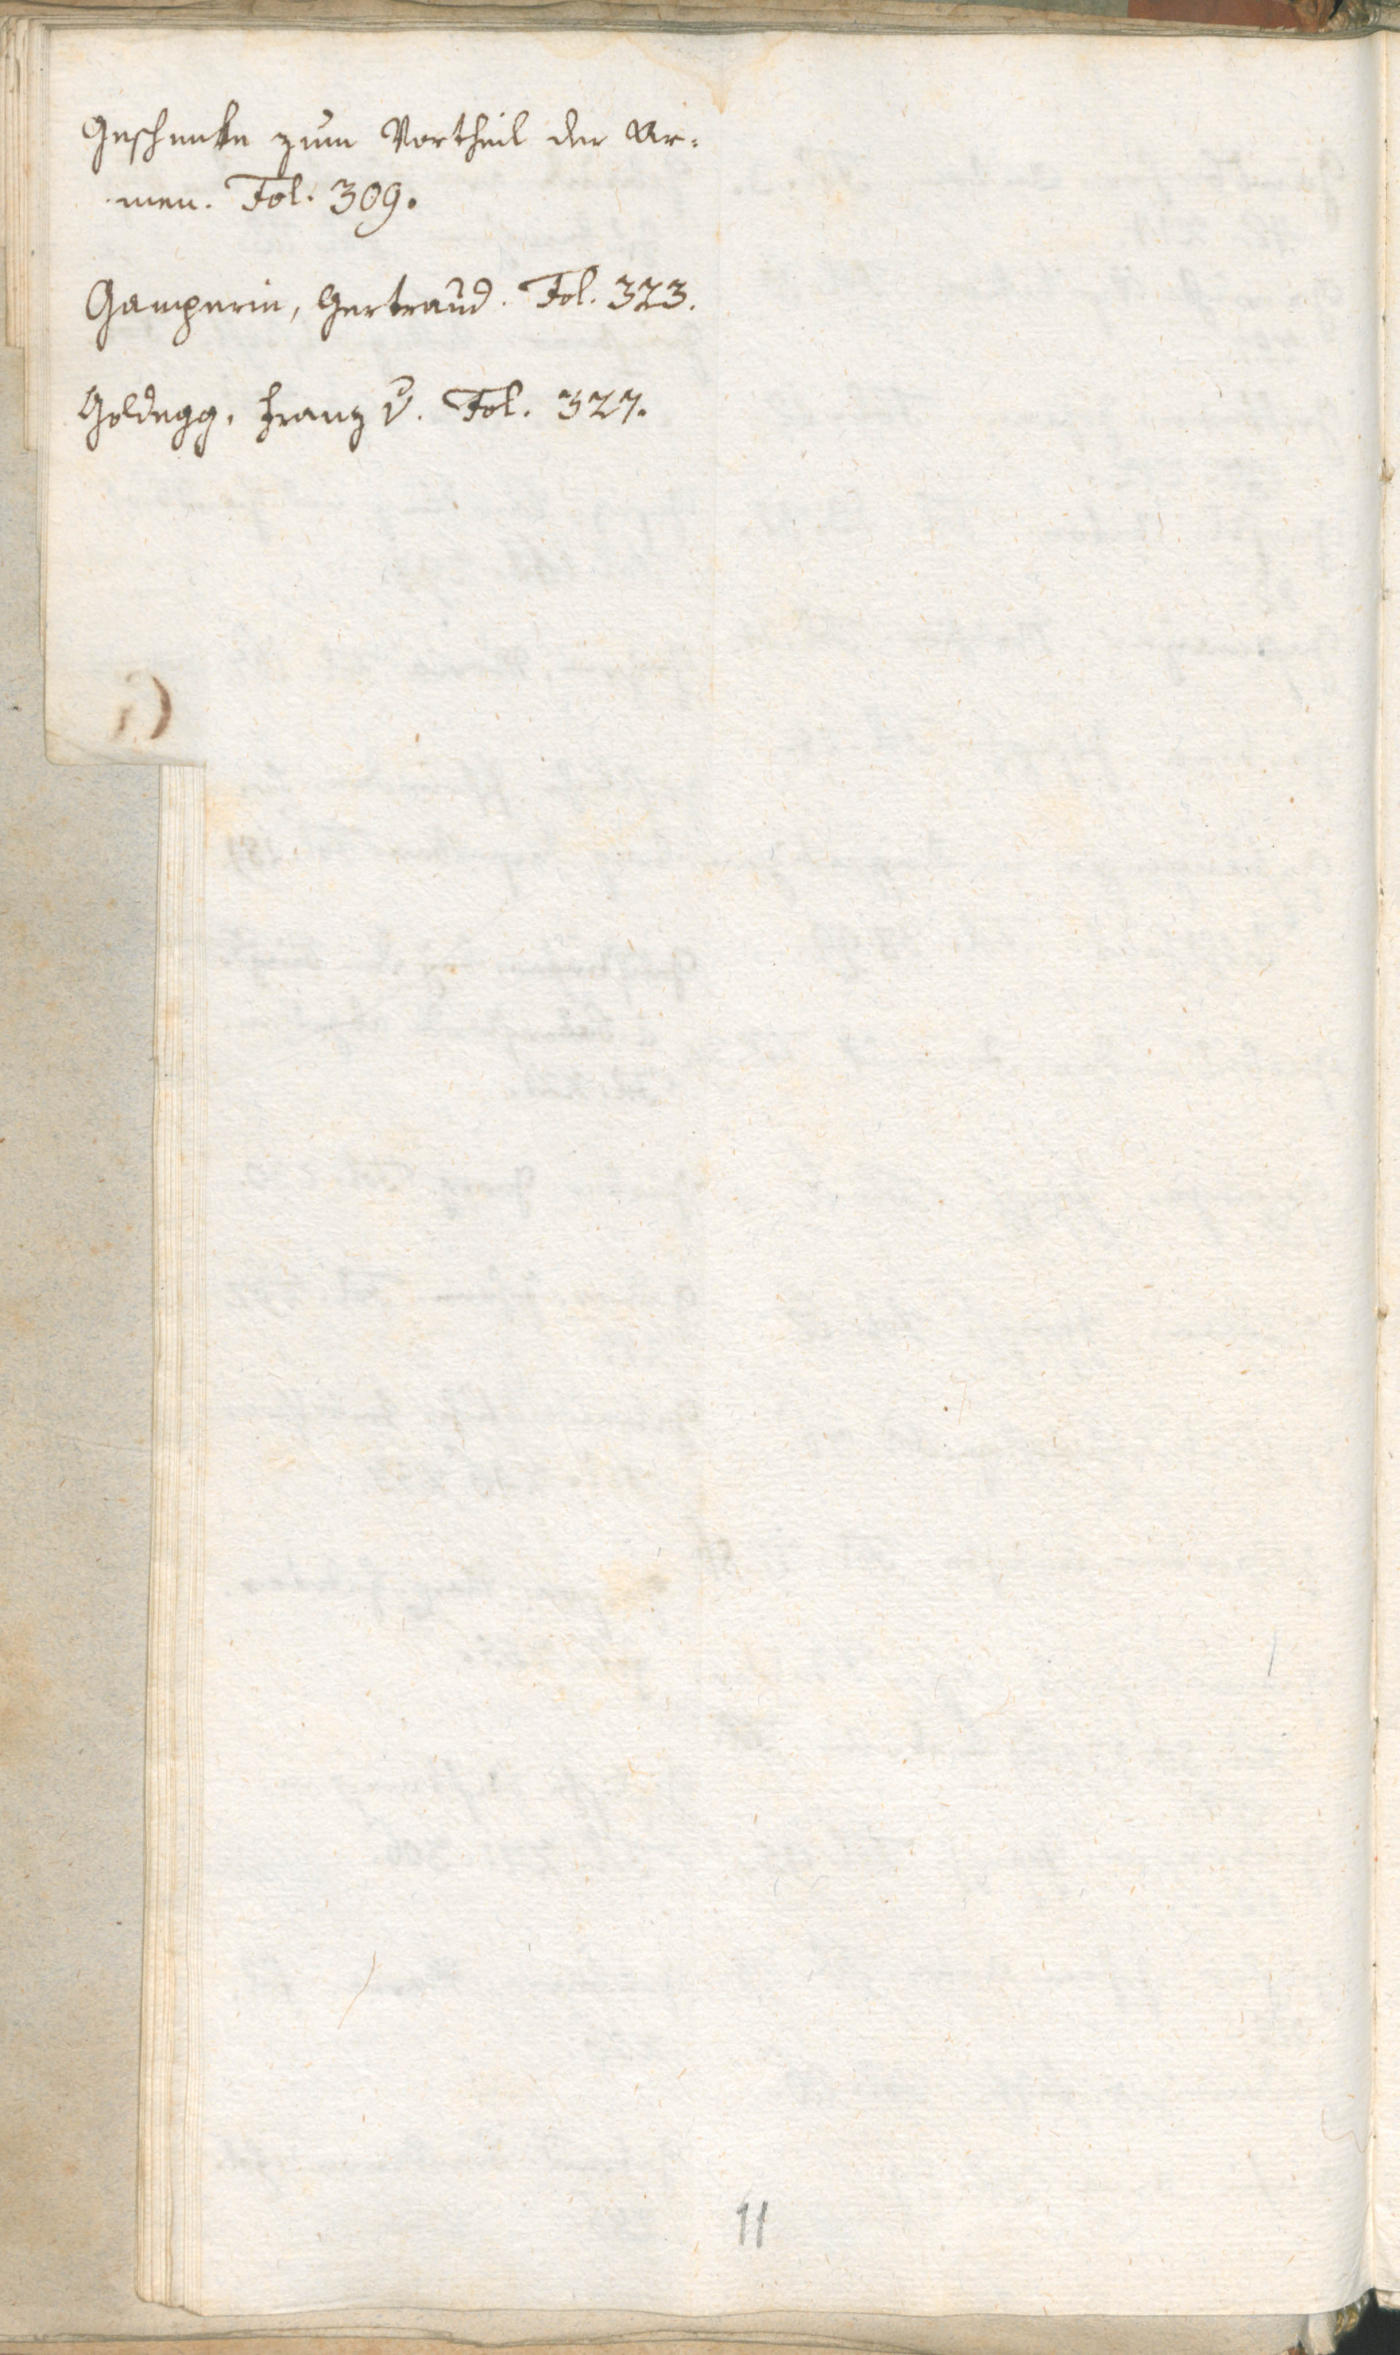 Geschenke zum Vortheil der Ar-
men. Fol. 309.
Gamperin, Gertraud. Fol. 323.
Goldegg, Franz v. Fol. 327.
11